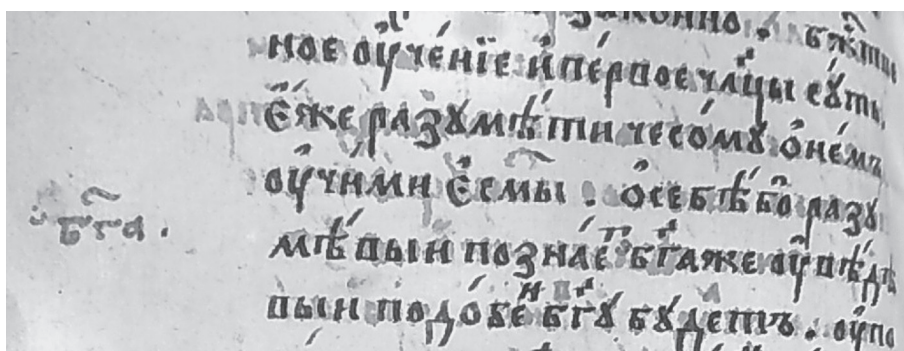 законно .
ное оу҆че́нїе и҆пе́рвое члц҃ы сꙋ́ть,
є҆́же разꙋмѣ́ти чесо́мꙋ о҆не́мъ
оу҆чи́ми є҆смы . о҆себѣ́ бо разꙋ
бг҃а .
мѣ́выи позна́еⷮ бг҃аже оу҆вѣ́дѣ
выи подо́беⷩ бг҃ꙋ бꙋ́детъ . оу҆по